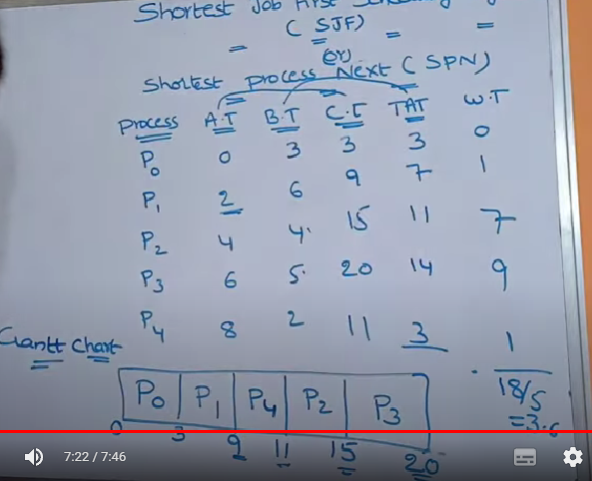 Shortest Job First
(SJF)
(or)
Shortest process Next (SPN)
Process A.T B.T C.T TAT W.T
P0 0 3 3 3 0
P1 2 6 9 7 1
P2 4 4 15 11 7
P3 6 5 20 14 9
P4 8 2 11 3 1
18/5
=3.6
Gantt Chart
P0 P1 P4 P2 P3
0 3 9 11 15 20
7:22 / 7:46